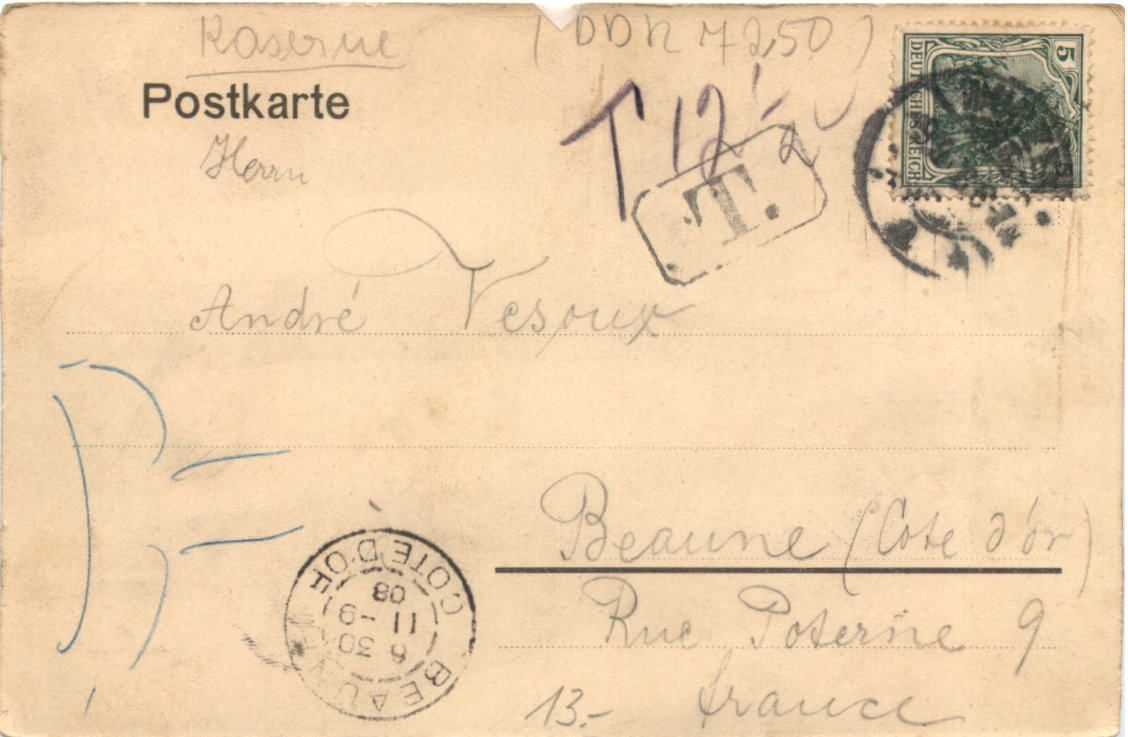 Kaserne (DDR 7250)
Postkarte
5
DEUTSCHES REICH
T 12 1/2
T.
Herrn
André Vesoux
Beaune (Cote d'or)
Rue Poterne 9
france
13.-
BEAUNE
6 30
11 - 9
08
COTE D'OR